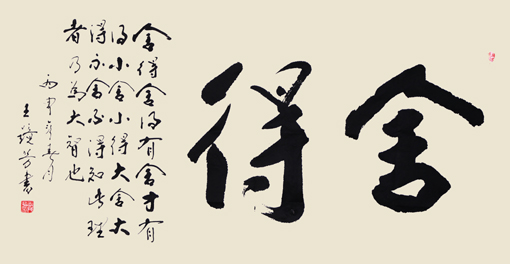 舍得
舍得舍得有舍才有
得小舍小得大舍大
得不舍不得知此理
者乃為大智也
丙申年春月
王芳書